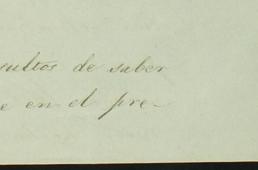 sultos de saber
e en el pre-